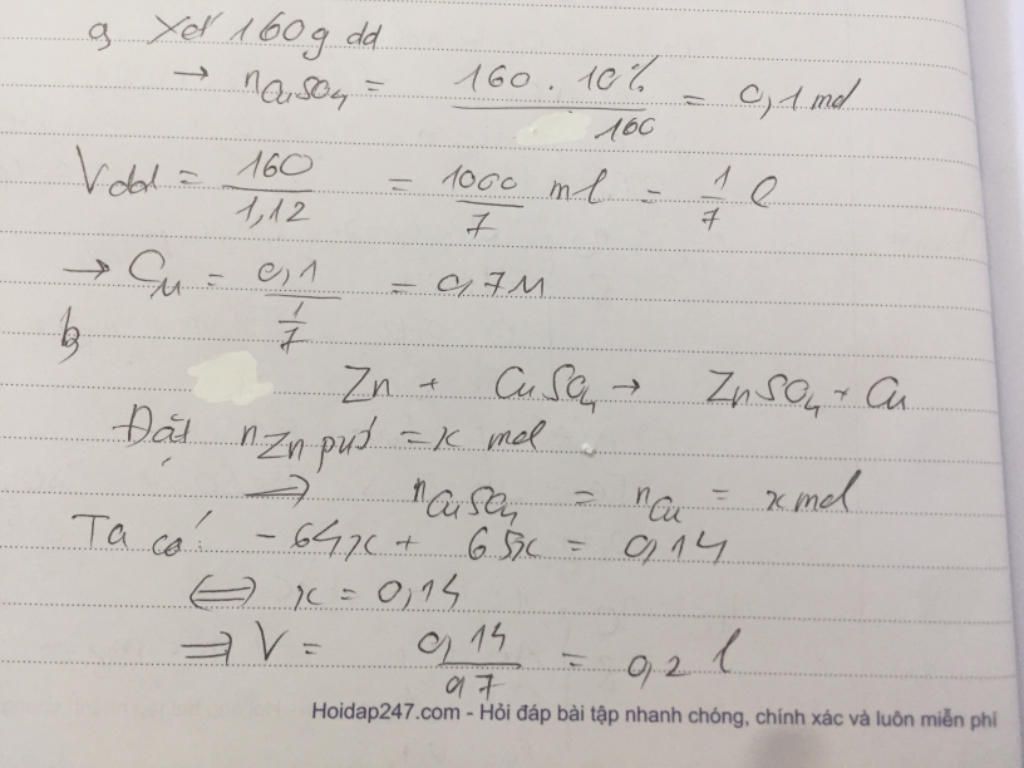 a, Xét 160g dd
→ nCuSO4 = 160 . 10% / 160 = 0,1 mol
Vdd = 160 / 1,12 = 1000 / 7 ml = 1/7 l
→ CM = 0,1 / (1/7) = 0,7M
b,
Zn + CuSO4 → ZnSO4 + Cu
Đặt nZn pứ = x mol
⇒ nCuSO4 = nCu = x mol
Ta có: -64x + 65x = 0,14
⇔ x = 0,14
⇒ V = 0,14 / 0,7 = 0,2 l
Hoidap247.com - Hỏi đáp bài tập nhanh chóng, chính xác và luôn miễn phí